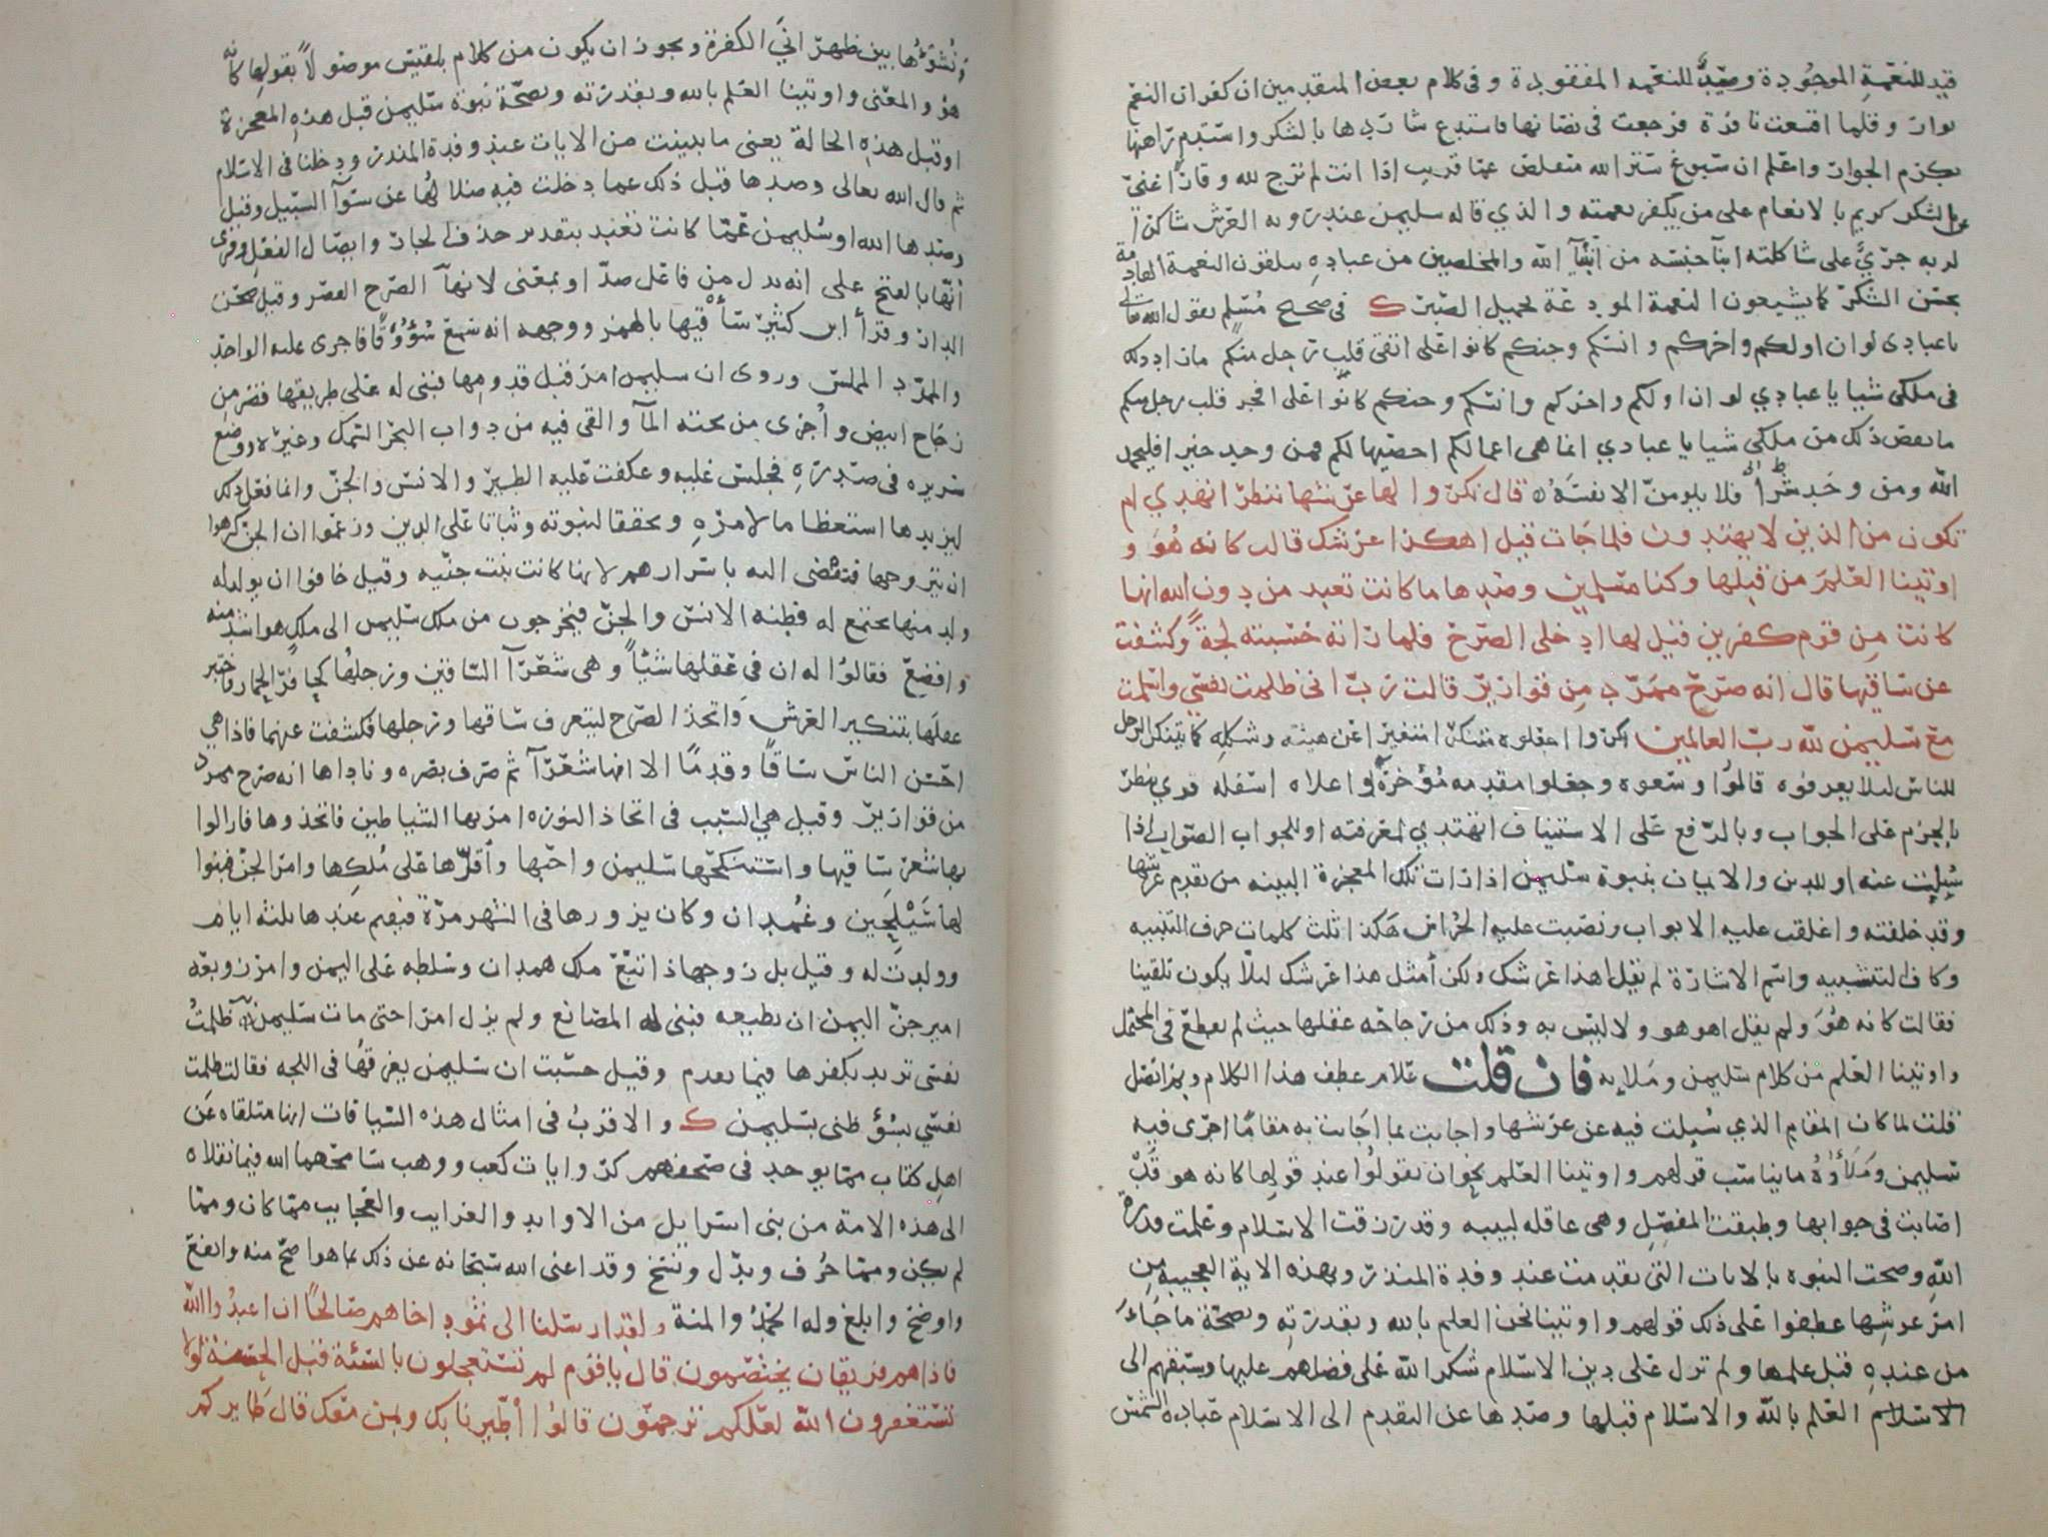 قيد للنعمة الموجودة وصيد للنعمه المفقودة وفي كلام بعض المتقدمين ان كفران النعم
بوار وقلما اقشعت نافرة فرجعت في نصابها فاستدع شاردها بالشكر واستدم راهنها
بكرم الجوار واعلم ان سبوغ ستر الله متقلص عما قريب اذا انت لم ترج لله وقارا غني
عن الشكر كريم بالانعام على من يكفر نعمته والذي قاله سليمن عند رويه العرش شاكرا
لربه جري على شاكلة ابنآ جنسه من انبيآ الله والمخلصين من عباده يتلقون النعمة القادمة
بحسن الشكر كما يشيعون النعمة المودعة بجميل الصبر ك في صحيح مسلم يقول الله تعالى
يا عبادي لو ان اولكم واخركم وانسكم وجنكم كانوا على اتقى قلب رجل منكم مازاد ذلك
في ملكي شيا يا عبادي لو ان اولكم واخركم وانسكم وجنكم كانوا على افجر قلب رجل منكم
ما نقص ذلك من ملكي شيا يا عبادي انما هي اعمالكم احصيها لكم فمن وجد خيرا فليحمد
الله ومن وجد شرا فلا يلومن الا نفسه قال نكروا لها عرشها ننظر اتهتدي ام
تكون من الذين لا يهتدون فلما جات قيل اهكذا عرشك قالت كانه هو و
اوتينا العلم من قبلها وكنا مسلمين وصدها ما كانت تعبد من دون الله انها
كانت من قوم كفرين قيل لها ادخلي الصرح فلما راته حسبته لجة وكشفت
عن ساقيها قال انه صرح ممرد من قوارير قالت رب اني ظلمت نفسي واسلمت
مع سليمن لله رب العالمين نكروا اجعلوه متنكرا متغيرا عن هيئته وشكله كما يتنكر الرجل
للناس ليلا يعرفوه قالوا وسعوه وجعلوا مقدمه مؤخرة واعلاه اسفله قري ننظر
بالجزم على الجواب وبالرفع على الاستيناف اتهتدي لمعرفته او للجواب الصواب اذا
سيلت عنه او للدين والايمان بنبوة سليمن اذا رات تلك المعجزة البينه من تقدم عرشها
وقد خلفته واغلقت عليه الابواب ونصبت عليه الحراس هكذا ثلث كلمات حرف التنبيه
وكاف التشبيه واسم الاشارة لم يقل اهذا عرشك ولكن أمثل هذا عرشك ليلا يكون تلقينا
فقالت كانه هو ولم يقل اهو هو ولا ليس به وذلك من رجاحه عقلها حيث لم يقطع في المحتمل
واوتينا العلم من كلام سليمن وملايه فان قلت علام عطف هذا الكلام وبم اتصل
قلت لما كان المقام الذي سيلت فيه عن عرشها واجابت بما اجابت به مقاما اجرى فيه
سليمن وملاؤه ما يناسب قولهم واوتينا العلم نحو ان يقولوا عند قولها كانه هو قد
اصابت في جوابها وطبقت المفصل وهي عاقله لبيبه وقد رزقت الاسلام وعلمت قدرة
الله وصحت النبوه بالايات التي تقدمت عند وفدة المنذر وبهذه الاية العجيبة من
امر عرشها عطفوا على ذلك قولهم واوتينا نحن العلم بالله وبقدرته وبصحة ما جاء
من عنده قبل علمها ولم نزل على دين الاسلام شكرا لله على فضلهم عليها وسبقهم الى
الاسلام العلم بالله والاسلام قبلها وصدها عن التقدم الى الاسلام عبادة الشمس
ونشؤها بين ظهراني الكفرة ويجوز ان يكون من كلام بلقيس موصولا بقولها كانه
هو والمعنى واوتينا العلم بالله وبقدرته وبصحة نبوة سليمن قبل هذه المعجزة
او قبل هذه الحالة يعني ما تبينت من الايات عند وفدة المنذر ودخلنا في الاسلام
ثم قال الله تعالى وصدها قبل ذلك عما دخلت فيه ضلالها عن سوآ السبيل وقيل
وصدها الله او سليمن عما كانت تعبد بتقدير حذف الجار وايصال الفعل وقرى
انها بالفتح على انه بدل من فاعل صد او بمعنى لانها الصرح القصر وقيل صحن
الدار وقرأ ابن كثير سأقيها بالهمز ووجهه انه سمع سؤوقا فاجرى عليه الواحد
والممرد المملس وروى ان سليمن امر قبل قدومها فبنى له على طريقها قصر من
زجاج ابيض واجرى من تحته المآ والقي فيه من دواب البحر السمك وغيره ووضع
سريره في صدره فجلس عليه وعكفت عليه الطير والانس والجن وانما فعل ذلك
ليزيدها استعظاما لامره وتحققا لنبوته وثباتا على الدين وزعموا ان الجن كرهوا
ان يتزوجها فتفضى اليه باسرارهم لانها كانت بنت جنيه وقيل خافوا ان يولد له
ولد منها يجتمع له فطنه الانس والجن فيخرجون من ملك سليمن الى ملك هو اشد منه
وافضع فقالوا له ان في عقلها شيا وهي شعرآ الساقين ورجلها كحافر الحمار فاختبر
عقلها بتنكير العرش واتخذ الصرح ليتعرف ساقها ورجلها فكشفت عنهما فاذا هي
احسن الناس ساقا وقدما الا انها شعرآ ثم صرف بصره وناداها انه صرح ممرد
من قوارير وقيل هي السبب في اتخاذ النوره امر بها الشياطين فاتخذوها فازالوا
بها شعر ساقيها واستنكحها سليمن واحبها وأقرها على ملكها وامر الجن فبنوا
لها سيلحين وغمدان وكان يزورها في الشهر مرة فيقيم عندها ثلثه ايام
وولدت له وقيل بل زوجها ذا تبع ملك همدان وسلطه على اليمن وامر زوبعه
امير جن اليمن ان يطيعه فبنى له المصانع ولم يزل امرا حتى مات سليمن ظلمت
نفسي تريد بكفرها فيما تقدم وقيل حسبت ان سليمن يغرقها في اللجه فقالت ظلمت
نفسي بسؤ ظني بسليمن ك والاقرب في امثال هذه السياقات انها متلقاه عن
اهل كتاب مما يوجد في صحفهم كروايات كعب ووهب سامحهما الله فيما نقلاه
الى هذه الامة من بني اسرايل من الاوابد والغرايب والعجايب مما كان ومما
لم يكن ومما حرف وبدل ونسخ وقد اغنى الله سبحانه عن ذلك بما هو اصح منه وانفع
واوضح وابلغ وله الحمد والمنة ولقد ارسلنا الى ثمود اخاهم صالحا ان اعبدوا الله
فاذا هم فريقان يختصمون قال يا قوم لم تستعجلون بالسئة قبل الحسنة لولا
تستغفرون الله لعلكم ترحمون قالوا أطيرنا بك وبمن معك قال طايركم